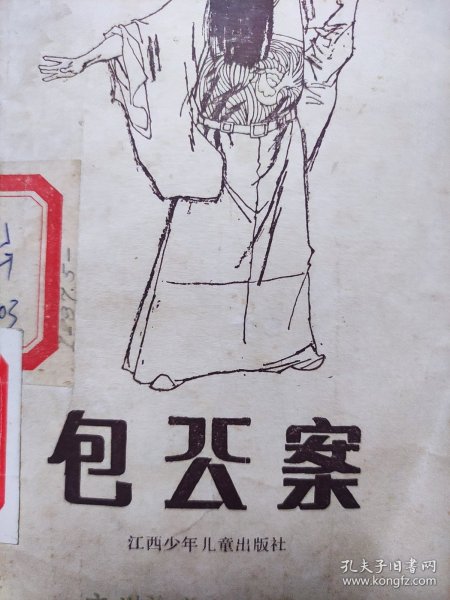 03
1-37.5-
包公案
江西少年儿童出版社
孔夫子旧书网
www.kongfz.com